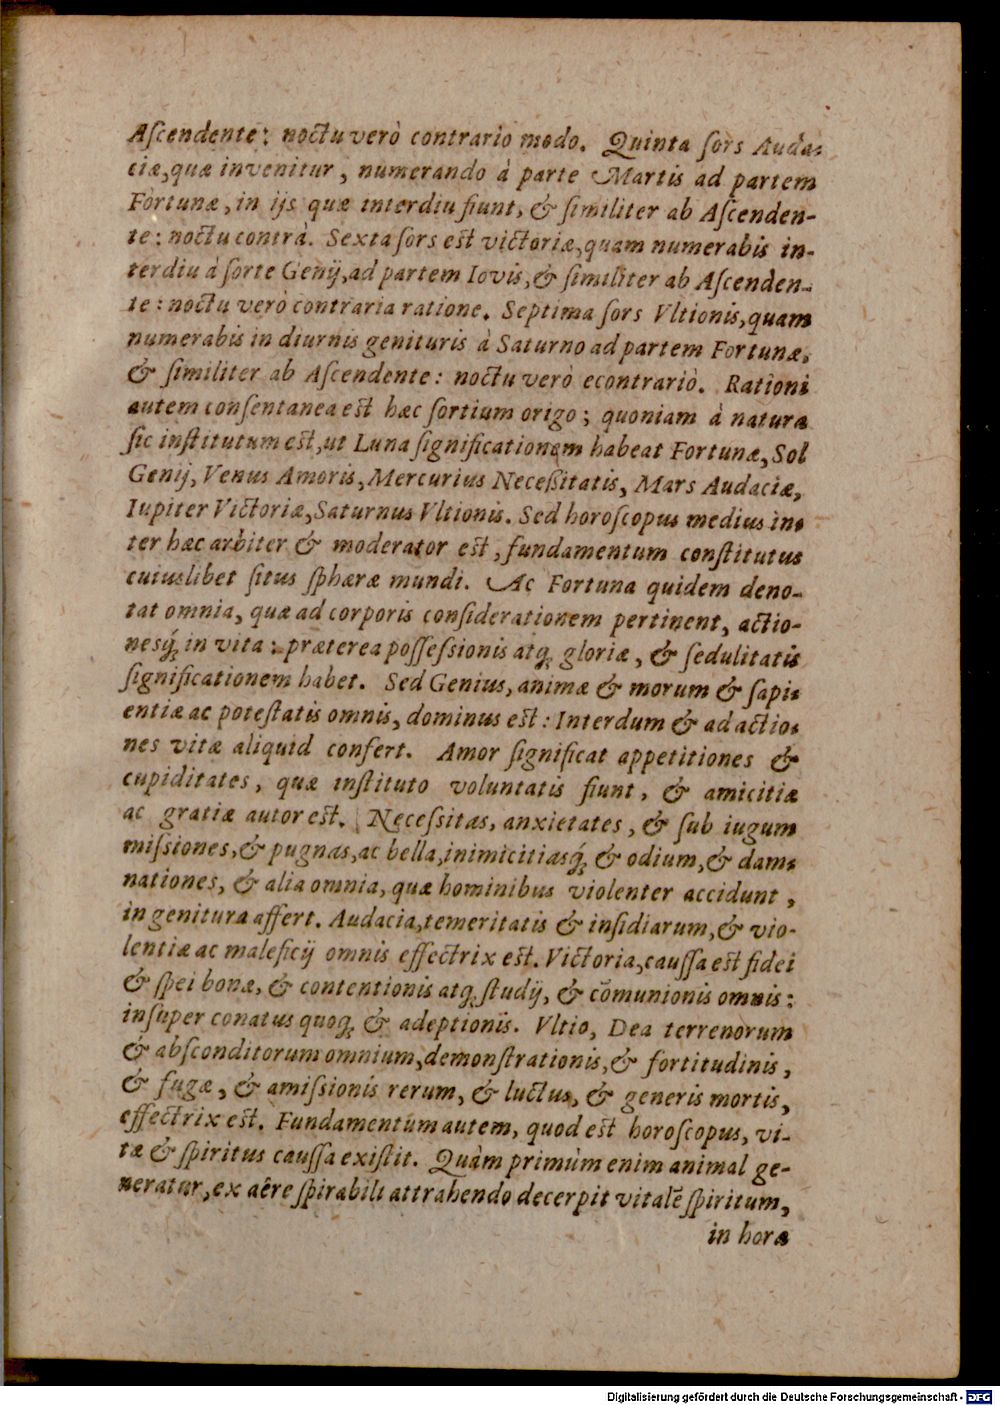 Aſcendente: noctu verò contrario modo. Quinta ſors Auda-
ciæ, quæ invenitur, numerando à parte Martis ad partem
Fortunæ, in ijs quæ interdiu fiunt, & ſimiliter ab Aſcenden-
te: noctu contrà. Sexta ſors est victoriæ, quam numerabis in-
terdiu à ſorte Genij, ad partem Iovis, & ſimiliter ab Aſcenden-
te: noctu verò contraria ratione. Septima ſors Vltionis, quam
numerabis in diurnis genituris à Saturno ad partem Fortunæ,
& ſimiliter ab Aſcendente: noctu verò econtrariò. Rationi
autem conſentanea est hæc ſortium origo; quoniam à natura
ſic inſtitutum est, ut Luna ſignificationem habeat Fortunæ, Sol
Genij, Venus Amoris, Mercurius Neceßitatis, Mars Audaciæ,
Iupiter Victoriæ, Saturnus Vltionis. Sed horoſcopus medius in-
ter hæc arbiter & moderator est, fundamentum conſtitutus
cuiuslibet ſitus ſphæræ mundi. Ac Fortuna quidem deno-
tat omnia, quæ ad corporis conſiderationem pertinent, actio-
nesq́; in vita: præterea poſſeſsionis atq; gloriæ, & ſedulitatis
ſignificationem habet. Sed Genius, animæ & morum & ſapi-
entiæ ac poteſtatis omnis, dominus est: Interdum & ad actio-
nes vitæ aliquid confert. Amor ſignificat appetitiones &
cupiditates, quæ inſtituto voluntatis fiunt, & amicitiæ
ac gratiæ autor est. Neceſsitas, anxietates, & ſub iugum
miſsiones, & pugnas, ac bella, inimicitiasq́; & odium, & dam-
nationes, & alia omnia, quæ hominibus violenter accidunt,
in genitura affert. Audacia, temeritatis & inſidiarum, & vio-
lentiæ ac maleficij omnis effectrix est. Victoria, cauſſa est fidei
& ſpei bonæ, & contentionis atq; ſtudij, & cōmunionis omnis:
inſuper conatus quoq; & adeptionis. Vltio, Dea terrenorum
& abſconditorum omnium, demonſtrationis, & fortitudinis,
& fugæ, & amiſsionis rerum, & luctus, & generis mortis,
effectrix est. Fundamentum autem, quod est horoſcopus, vi-
tæ & ſpiritus cauſſa exiſtit. Quàm primùm enim animal ge-
neratur, ex aêre ſpirabili attrahendo decerpit vitalē ſpiritum,
in hora
Digitalisierung gefördert durch die Deutsche Forschungsgemeinschaft - DFG